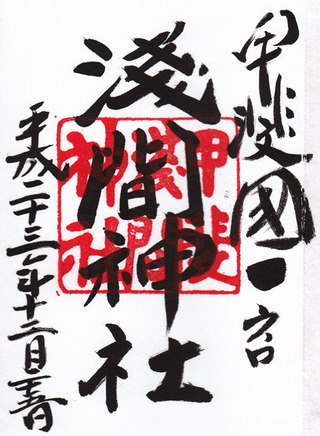 甲斐國一宮
淺間神社
平成二十三年十二月
甲斐
淺間
神社